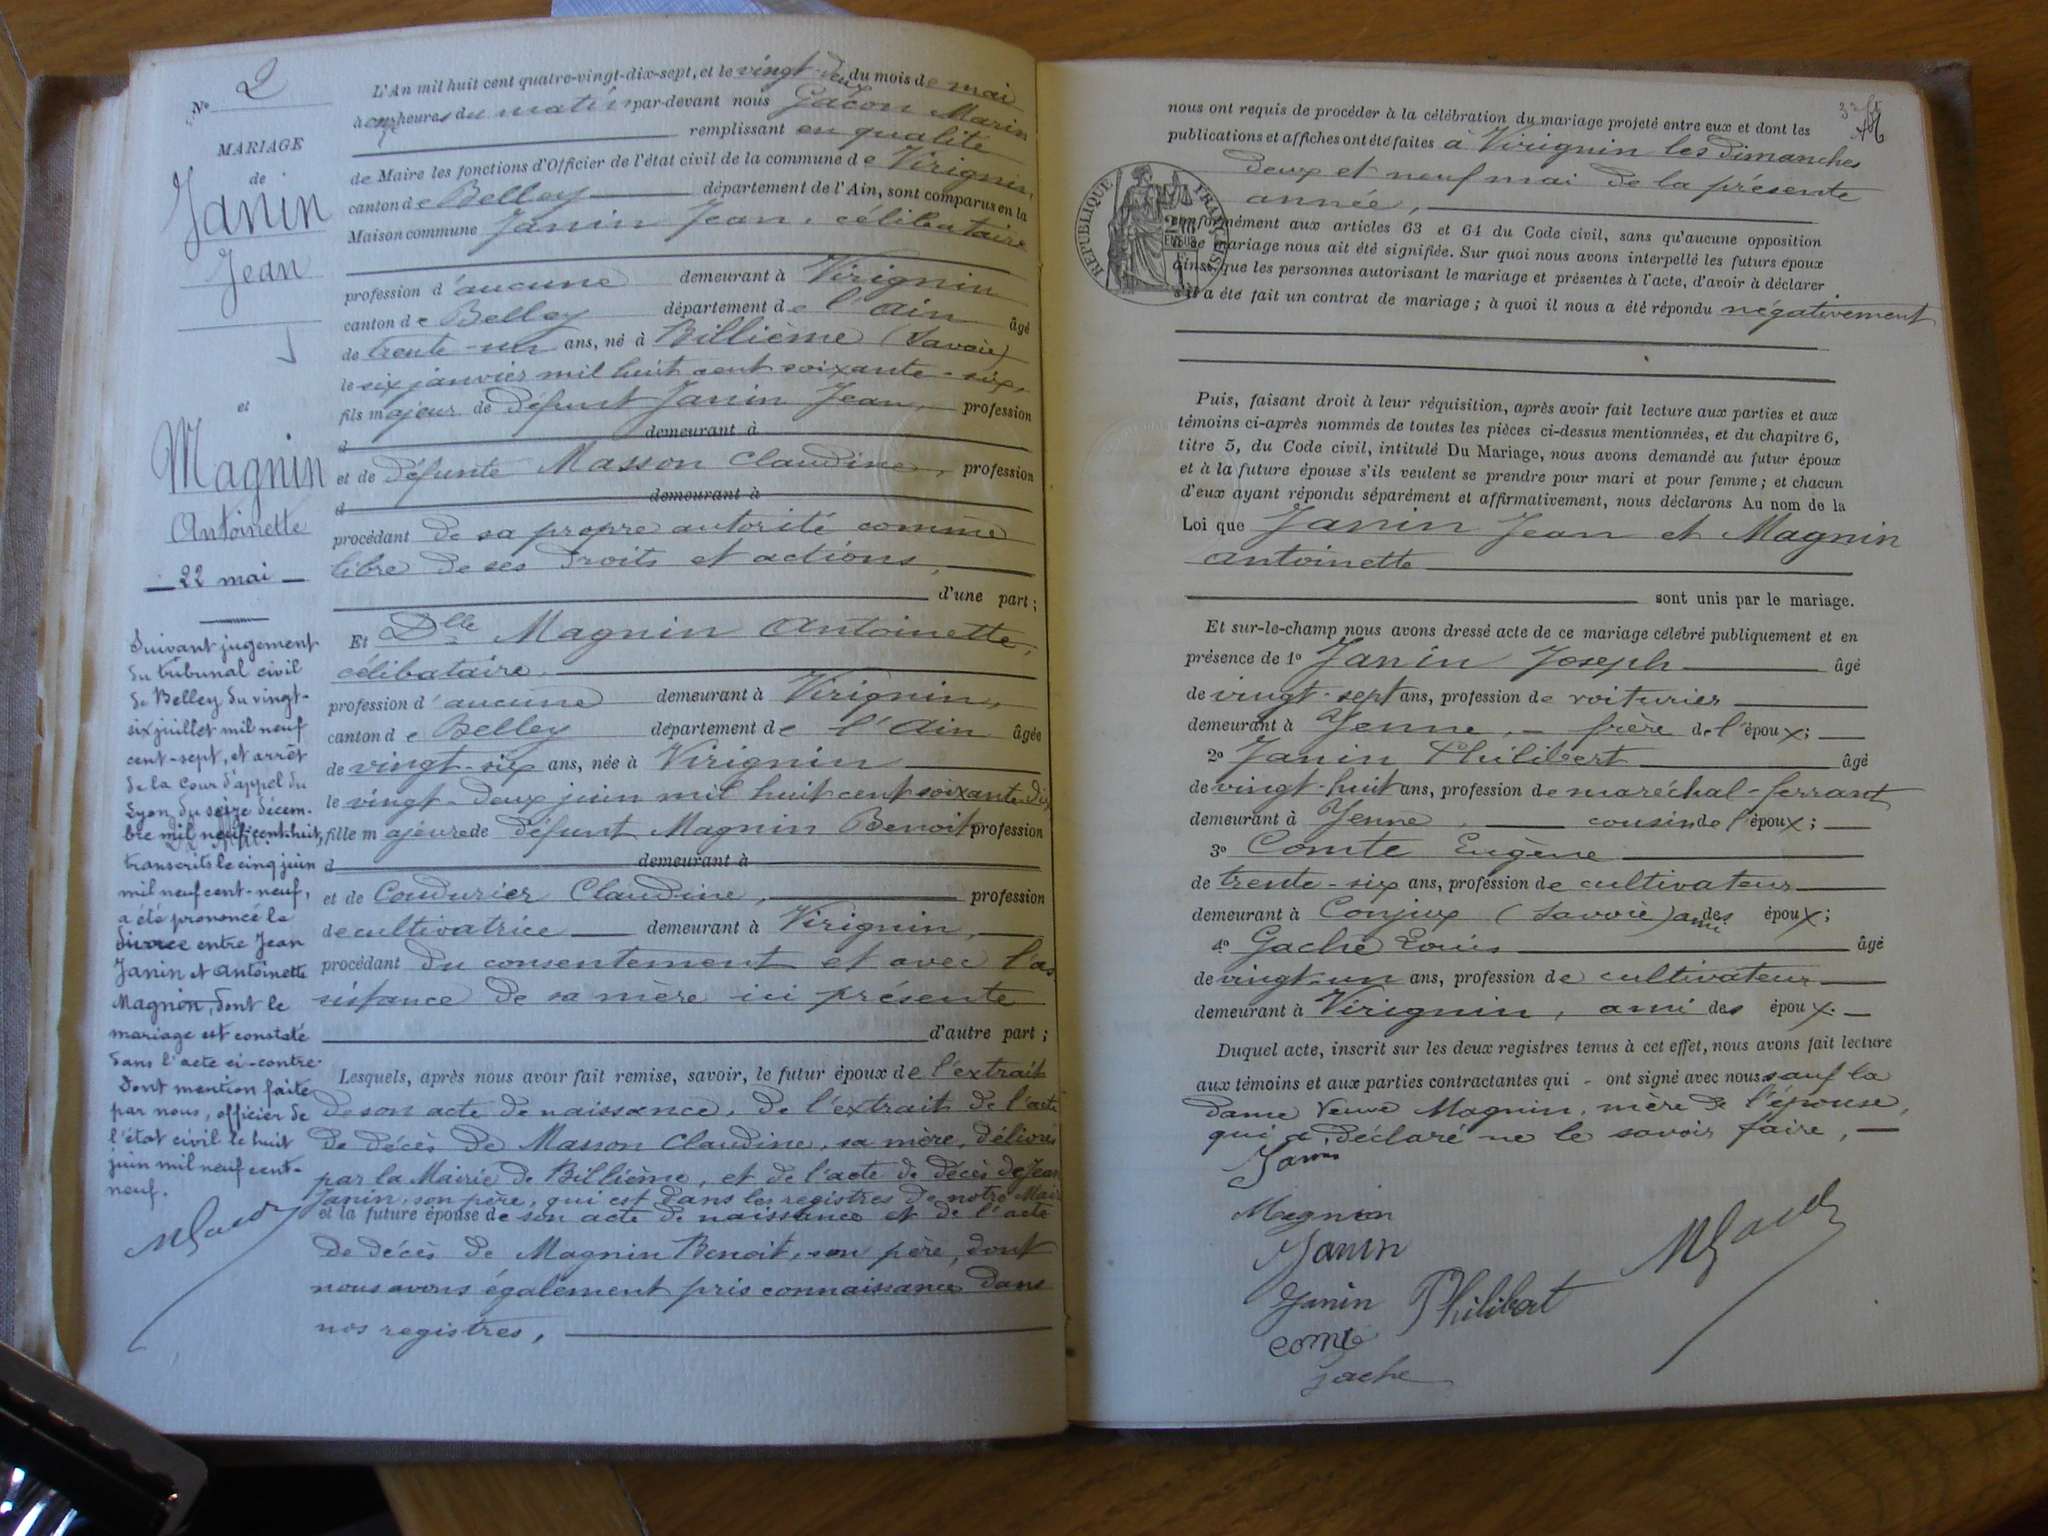 N° 2
MARIAGE
de
Janin
Jean
et
Magnin
Antoinette
22 mai
Suivant jugement
du tribunal civil
de Belley du vingt-
six juillet mil neuf
cent-sept, et arrêt
de la Cour d'appel du
Lyon du seize décem-
bre mil neuf cent-huit,
transcrits le cinq juin
mil neuf cent-neuf,
a été prononcé le
divorce entre Jean
Janin et Antoinette
Magnin, dont le
mariage est constaté
dans l'acte ci-contre.
Dont mention faite
par nous, officier de
l'état civil le huit
juin mil neuf cent-
neuf.
L'An mil huit cent quatre-vingt-dix-sept, et le vingt-deux du mois de mai
à onze heures du matin par-devant nous Gacon Marin
remplissant en qualité
de Maire les fonctions d'Officier de l'état civil de la commune de Virignin,
canton de Belley département de l'Ain, sont comparus en la
Maison commune Janin Jean, célibataire
profession d'aucune demeurant à Virignin
canton de Belley département de l'Ain âgé
de trente-un ans, né à Billième (Savoie)
le six janvier mil huit cent soixante-six,
fils majeur de défunt Janin Jean, profession
d demeurant à
et de défunte Masson Claudine, profession
d demeurant à
procédant de sa propre autorité comme
libre de ses droits et actions,
d'une part;
Et Dlle Magnin Antoinette,
célibataire
profession d'aucune demeurant à Virignin,
canton de Belley département de l'Ain âgée
de vingt-six ans, née à Virignin
le vingt-deux juin mil huit cent soixante-dix
fille majeure de défunt Magnin Benoît profession
d demeurant à
et de Coudurier Claudine, profession
de cultivatrice demeurant à Virignin,
procédant du consentement et avec l'as
sistance de sa mère ici présente
d'autre part;
Lesquels, après nous avoir fait remise, savoir, le futur époux de l'extrait
de son acte de naissance, de l'extrait de l'acte
de décès de Masson Claudine, sa mère, délivrés
par la Mairie de Billième, et de l'acte de décès de Jean
Janin, son père, qui est dans les registres de notre Mairie
et la future épouse de son acte de naissance et de l'acte
de décès de Magnin Benoît, son père, dont
nous avons également pris connaissance dans
nos registres,
nous ont requis de procéder à la célébration du mariage projeté entre eux et dont les
publications et affiches ont été faites à Virignin les dimanches
deux et neuf mai de la présente
année,
RÉPUBLIQUE FRANÇAISE
conformément aux articles 63 et 64 du Code civil, sans qu'aucune opposition
à ce mariage nous ait été signifiée. Sur quoi nous avons interpellé les futurs époux
ainsi que les personnes autorisant le mariage et présentes à l'acte, d'avoir à déclarer
s'il a été fait un contrat de mariage; à quoi il nous a été répondu négativement
Puis, faisant droit à leur réquisition, après avoir fait lecture aux parties et aux
témoins ci-après nommés de toutes les pièces ci-dessus mentionnées, et du chapitre 6,
titre 5, du Code civil, intitulé Du Mariage, nous avons demandé au futur époux
et à la future épouse s'ils veulent se prendre pour mari et pour femme; et chacun
d'eux ayant répondu séparément et affirmativement, nous déclarons Au nom de la
Loi que Janin Jean et Magnin
Antoinette
sont unis par le mariage.
Et sur-le-champ nous avons dressé acte de ce mariage célébré publiquement et en
présence de 1° Janin Joseph âgé
de vingt-sept ans, profession de voiturier
demeurant à Yenne, frère de l'époux;
2° Janin Philibert âgé
de vingt-huit ans, profession de maréchal-ferrant
demeurant à Yenne, cousin de l'époux;
3° Comte Eugène
de trente-six ans, profession de cultivateur
demeurant à Conjux (Savoie) ami des époux;
4° Gache Louis âgé
de vingt-un ans, profession de cultivateur
demeurant à Virignin, ami des époux.
Duquel acte, inscrit sur les deux registres tenus à cet effet, nous avons fait lecture
aux témoins et aux parties contractantes qui ont signé avec nous sauf la
dame veuve Magnin, mère de l'épouse,
qui a déclaré ne le savoir faire,
Janin
Magnin
Janin
Janin Philibert
Comte
Gache